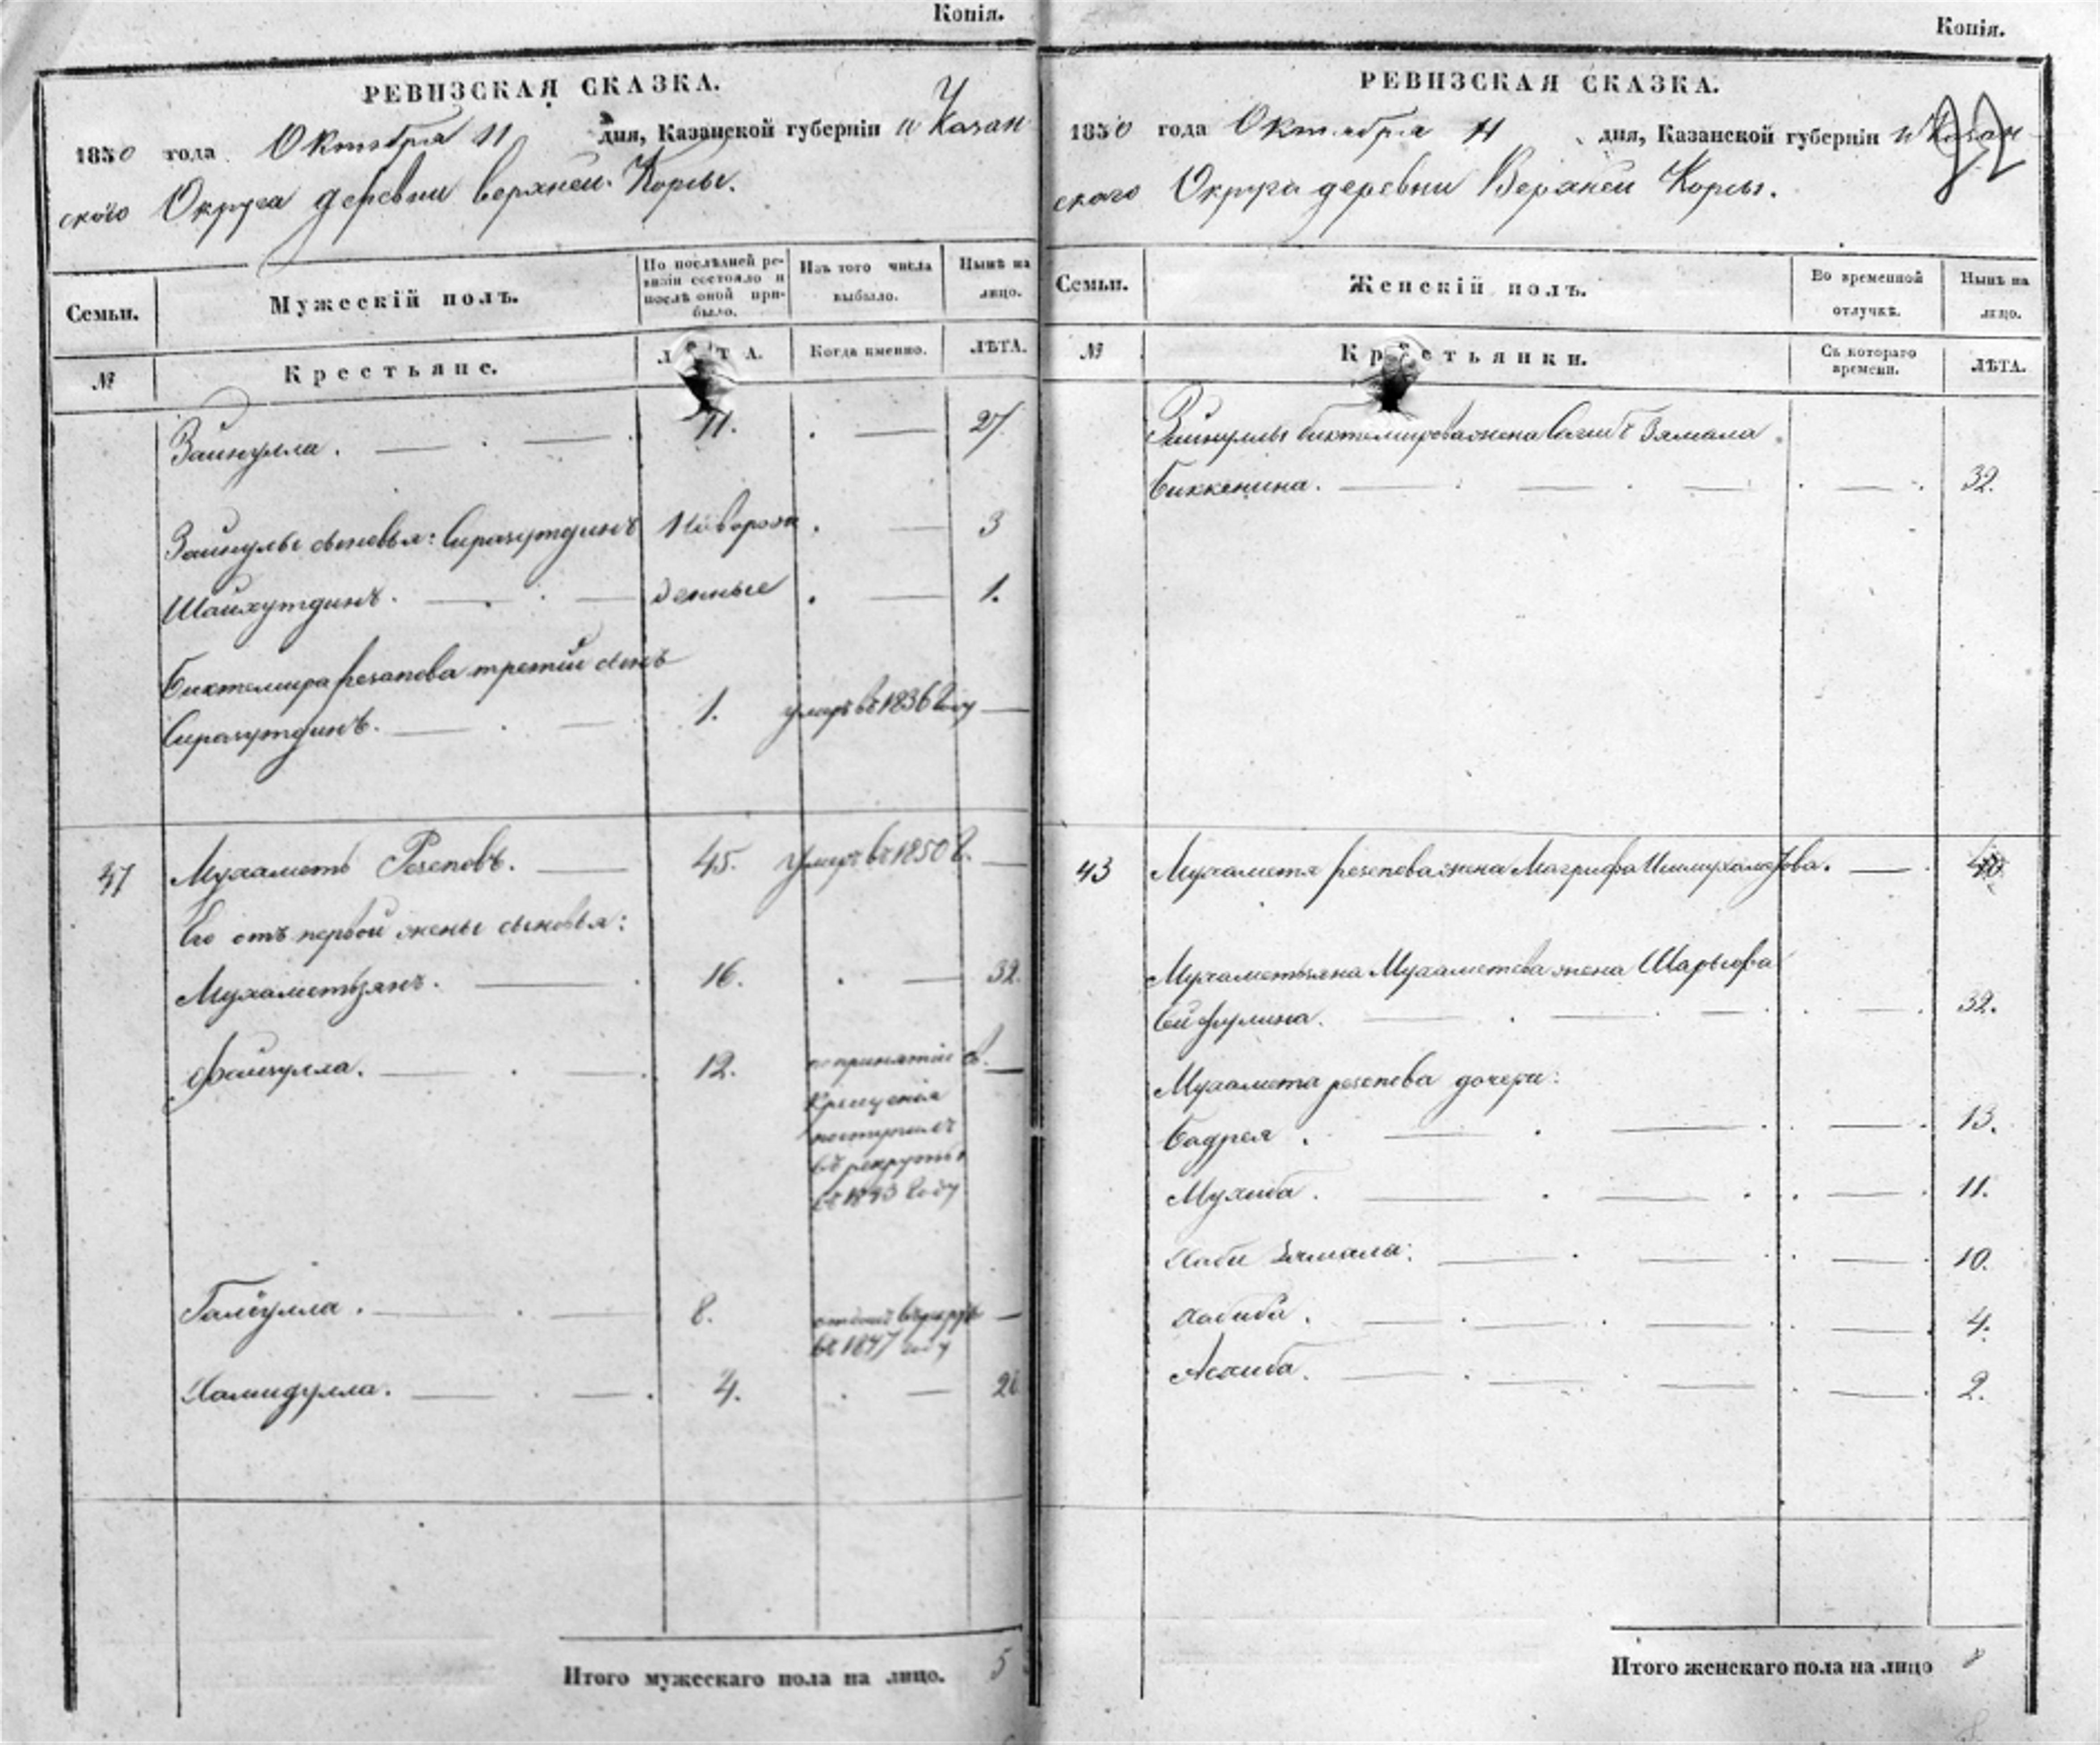 Копія.
РЕВИЗСКАЯ СКАЗКА.
1850 года Октября 11 дня, Казанской губерніи и Казан
ского Округа деревни верхней Корсы.
Семьи.
Мужескій полъ.
По послѣдней ре-
визіи состояло и
послѣ оной при-
было.
Изъ того числа
выбыло.
Нынѣ на
лицо.
№
Крестьяне.
ЛѢТА.
Когда именно.
ЛѢТА.
Зайнулла. 11. 27
Зайнуллы сыновья: Сиразутдинъ Новорож 3
Шайхутдинъ. денные 1.
Биктемира Резепова третій сынъ
Сиразутдинъ. 1. умеръ въ 1836 году
47 Мухаметъ Резеповъ. 45. умеръ въ 1850 г.
Его отъ первой жены сыновья:
Мухаметзянъ. 16. 32.
Файзулла. 12. по принятіи св.
Крещенія
поступилъ
въ рекруты
въ 1843 году
Галиулла. 8. отданъ въ рекру
въ 1847 году
Хамидулла. 4. 20
Итого мужескаго пола на лицо. 5
Копія.
РЕВИЗСКАЯ СКАЗКА.
1850 года Октября 11 дня, Казанской губерніи и Казан
ского Округа деревни Верхней Корсы.
Семьи.
Женскій полъ.
Во временной
отлучкѣ.
Нынѣ на
лицо.
№
Крестьянки.
Съ котораго
времени.
ЛѢТА.
Зайнуллы биктемирова жена Сагибъ Зямала
Биккенина. 32.
43 Мухаметя резепова жена Магрифа Ишмухаметова. 40
Мухаметзяна Мухаметева жена Шарыфа
Сейфулина. 32.
Мухамета резепова дочери:
Бадрея. 13.
Мухиба. 11.
Хаби Зямала. 10.
Хабиба. 4.
Асхиба. 2.
Итого женскаго пола на лицо 8